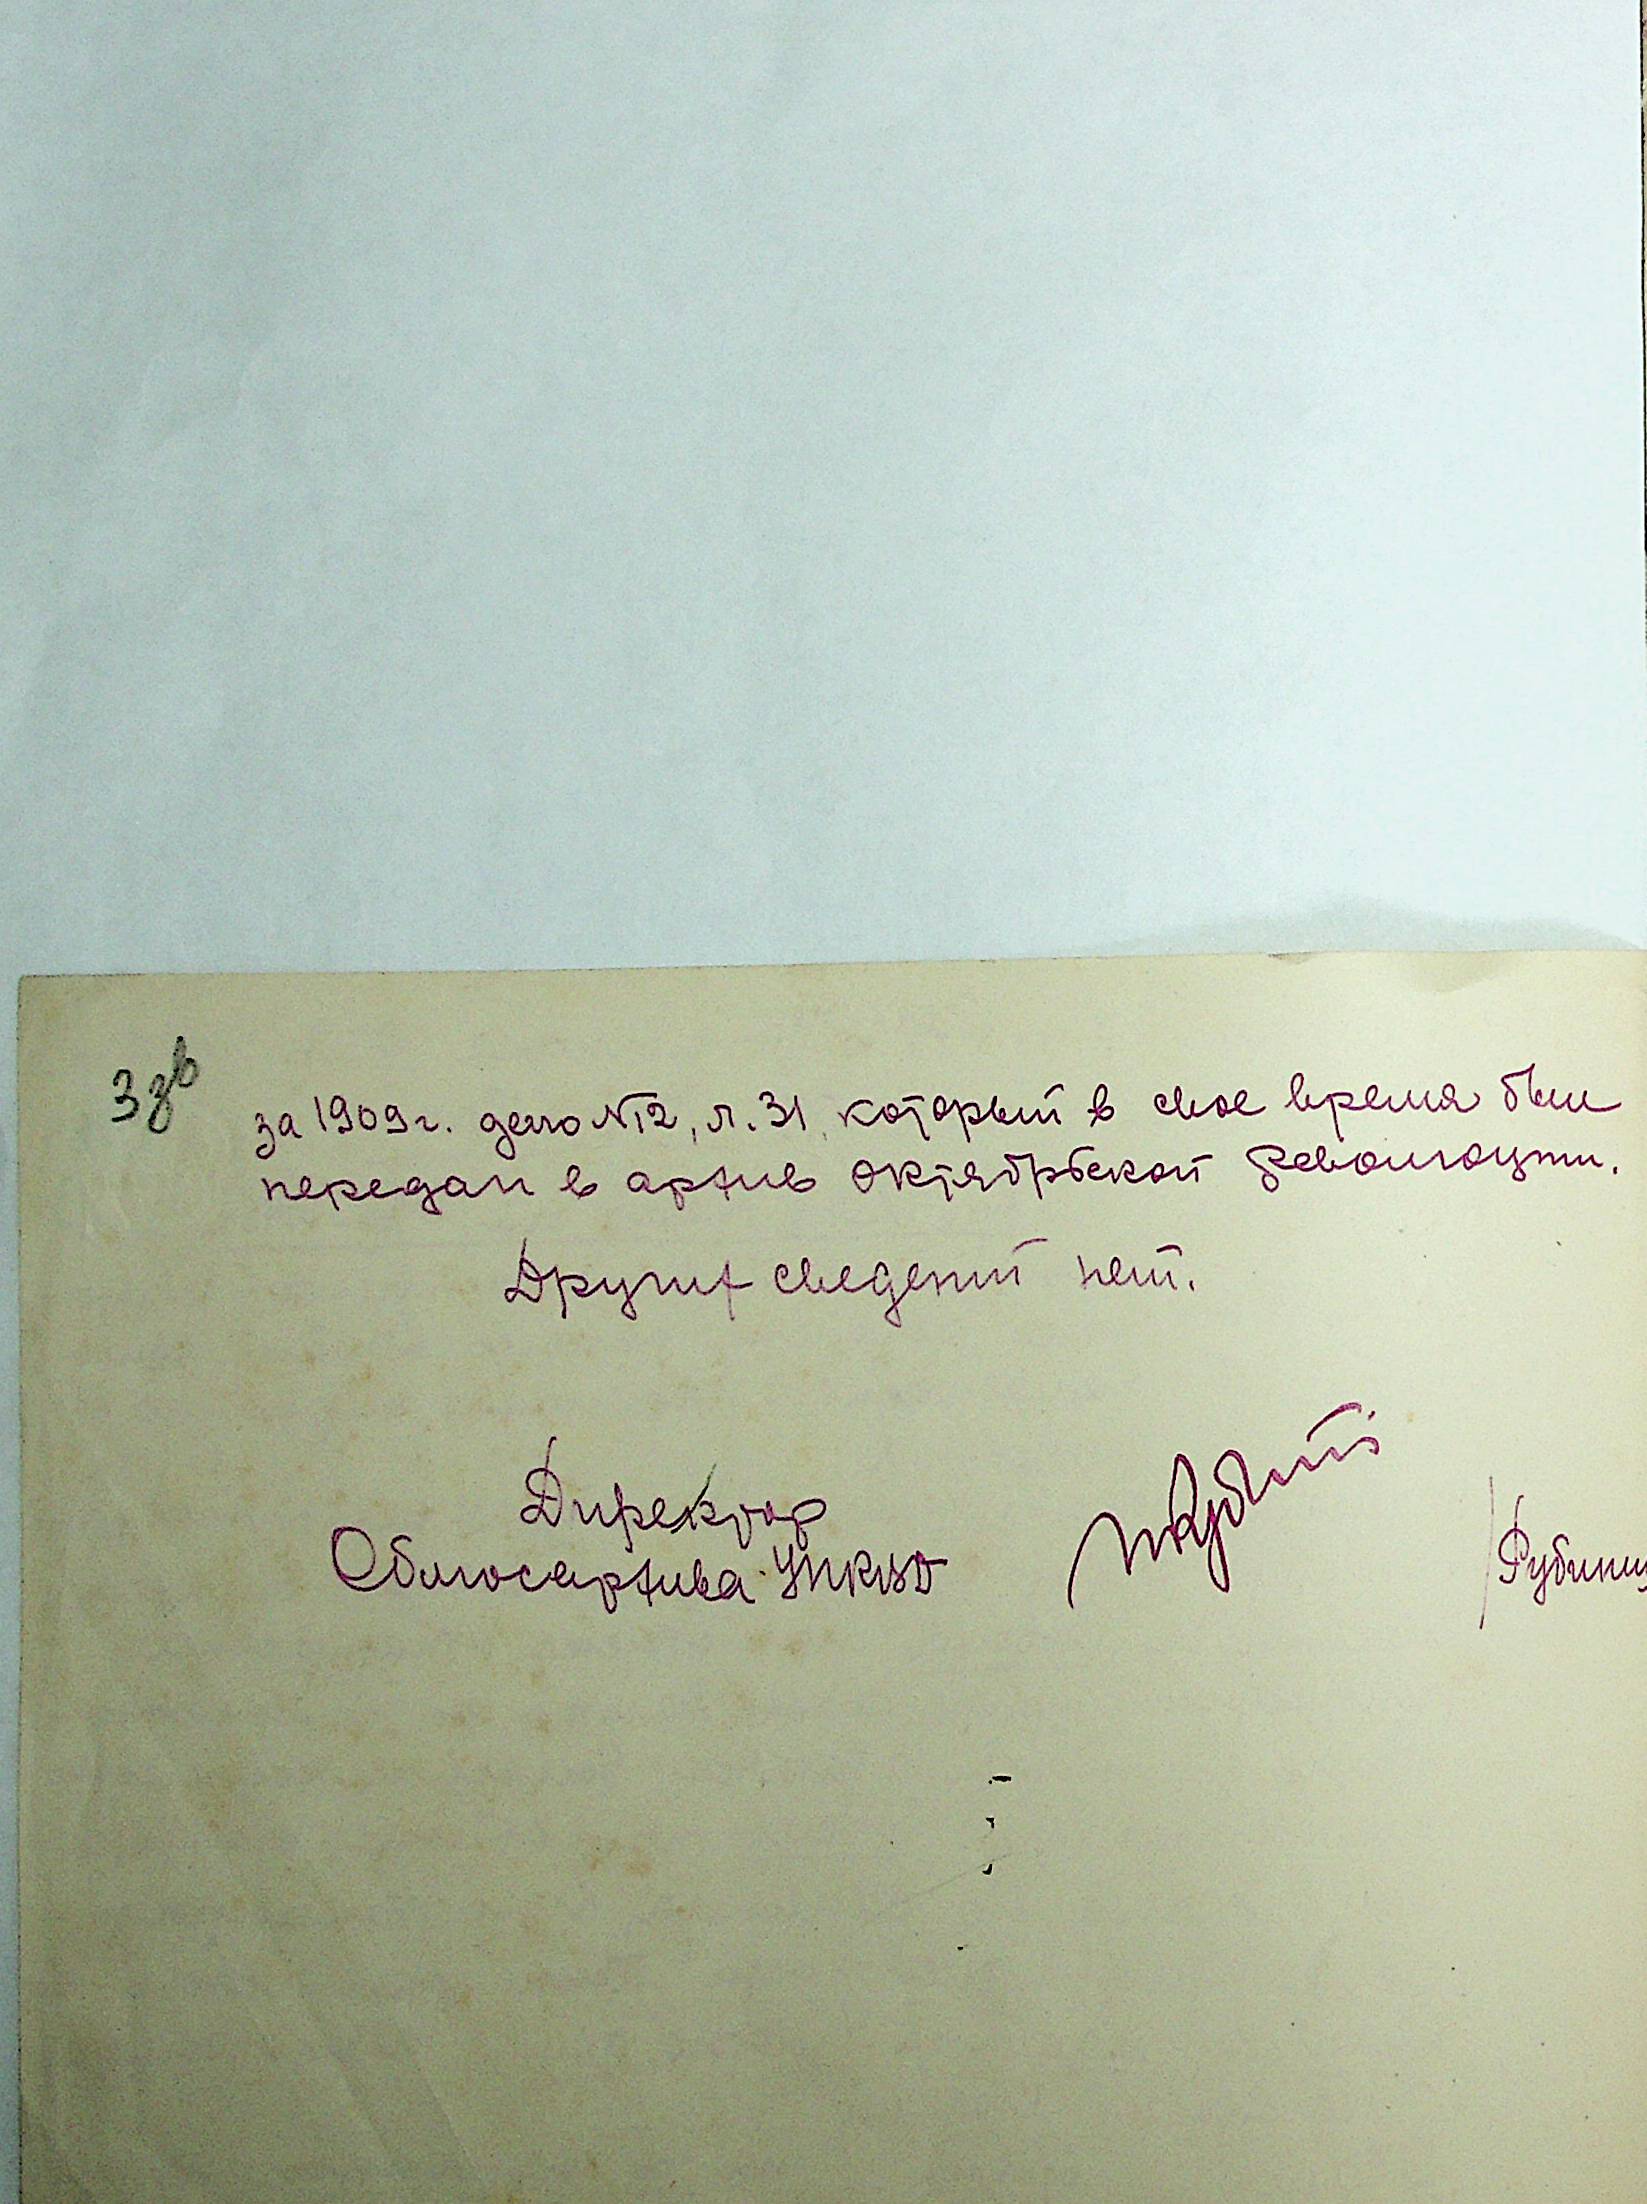 за 1909 г. дело №12, л. 31, который в свое время был
передан в архив Октябрьской Революции.
Других сведений нет.
Директор
Облгосархива УНКВД
/Рубини